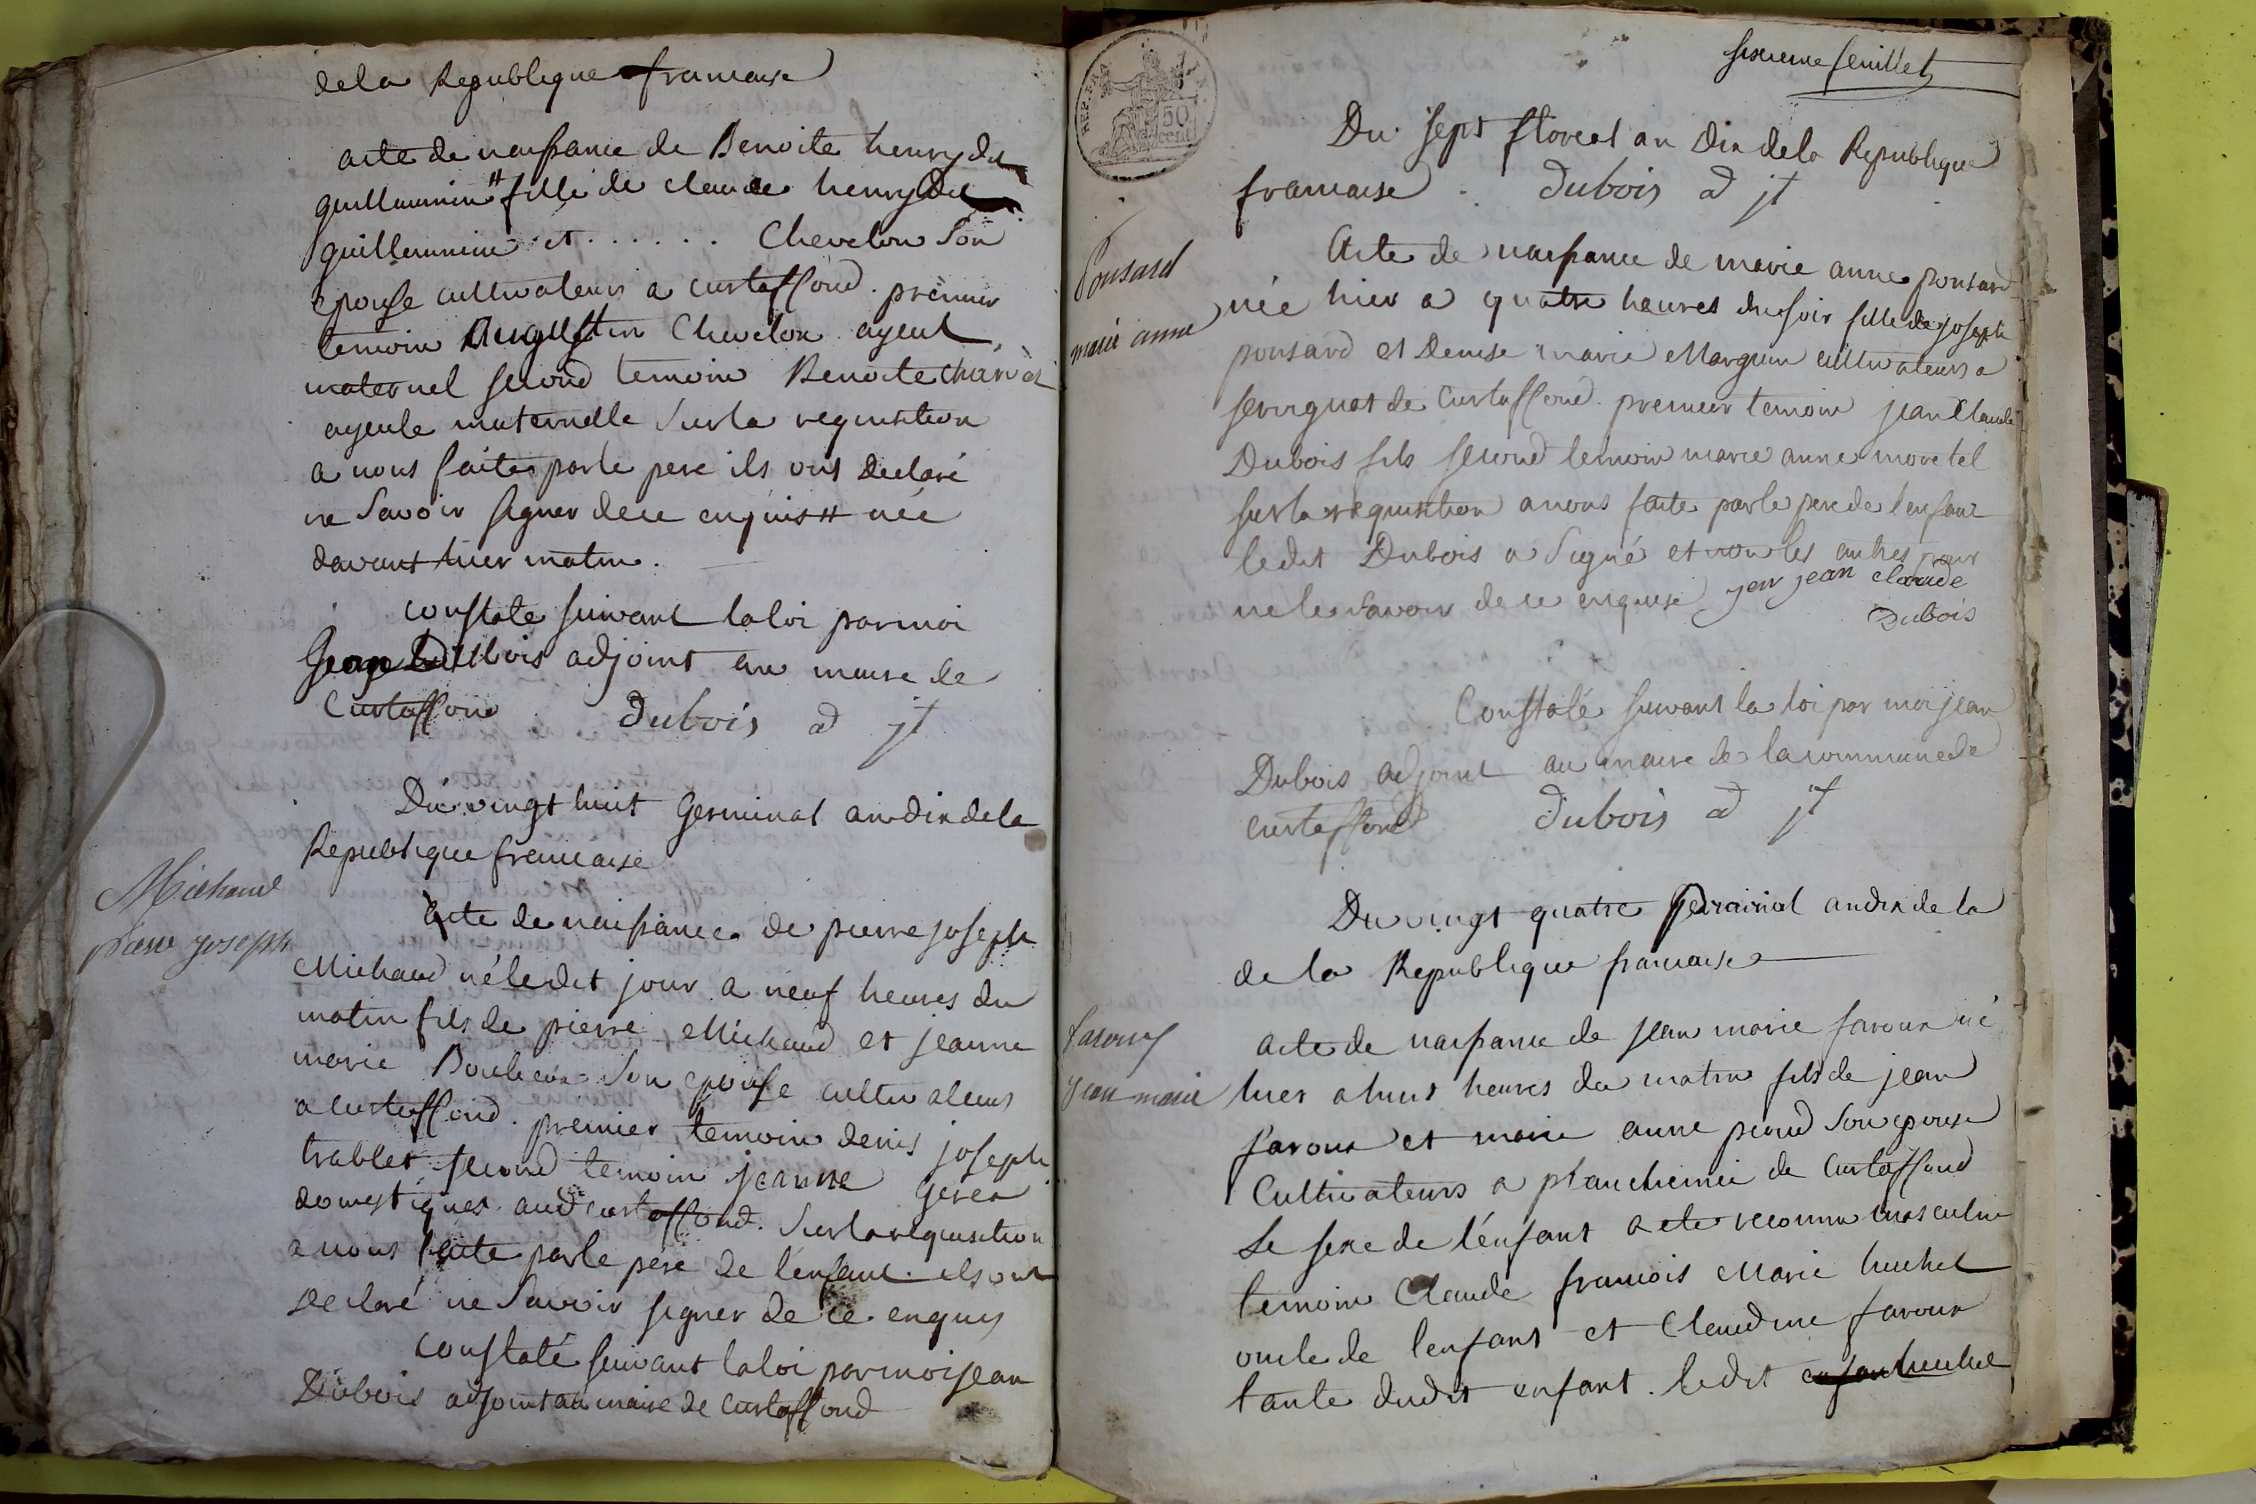 de la Republique francaise
acte de naissance de Benoite henry dit
guillaumin # fille de claude henry dit
guillaumin et . . . . . . Chevelon Son
epouse cultivateurs a curtaffond. premier
temoin Augustin Chevelon ayeul
maternel second temoin Benoite
ayeule maternelle Sur la requisition
a nous faite par le pere ils ont Declaré
ne Savoir signer de ce enquis # née
davant hier matin.
constate suivant la loi par moi
Jean Dubois adjoint au maire de
Curtaffond Dubois ad jt
Du vingt huit Germinal an dix de la
Republique francaise
Michaud
pierre joseph
Acte de naissance de pierre joseph
Michaud né ledit jour a neuf heures du
matin fils de pierre Michaud et jeanne
marie Son epouse cultivateurs
a curtaffond. premier temoin denis joseph
trablet second temoin jeanne
domestiques aud curtaffond. Sur la requisition
a nous faite par le pere de l'enfant. ils ont
declaré ne Savoir signer de ce enquis
constaté suivant la loi par moi jean
Dubois adjoint au maire de curtaffond
sixieme feuillet
REP. FRA
50
cent
Du sept floreal an Dix de la Republique
francaise. Dubois ad jt
Ponsard
marie anne
Acte de naissance de marie anne ponsard
née hier a quatre heures du soir fille de joseph
ponsard et Denise marie Marguin cultivateurs a
de Curtaffond. premier temoin jean Claude
Dubois fils second temoin marie anne moretel
sur la requisition a nous faite par le pere de l'enfant
ledit Dubois a Signé et non les autres pour
ne le savoir de ce enquise jean claude
Dubois
Constaté suivant la loi par moi jean
Dubois adjoint au maire de la commune de
curtaffond Dubois ad jt
Du vingt quatre prairial an dix de la
de la Republique francaise
favoux
jean marie
acte de naissance de jean marie favoux né
hier a huit heures du matin fils de jean
favoux et marie anne Son epouse
Cultivateurs a planchemin de Curtaffond
Le sexe de l'enfant a ete reconnu masculin
temoin Claude francois Marie huchet
oncle de l'enfant et Claudine favoux
tante dudit enfant. ledit